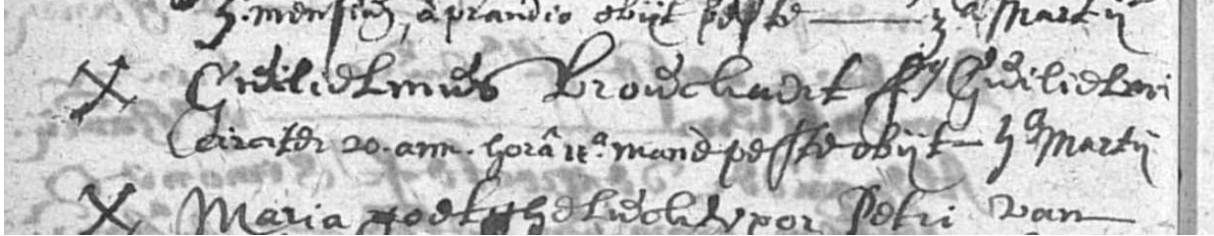 mensium, a prandio obijt peste — 3ᵃ Martij
Guilielmus Brouchaert fs Guilielmi
Circiter 20. ann. horâ 11ª. mane peste obijt — 4ª Martij
Maria uxor Petri van